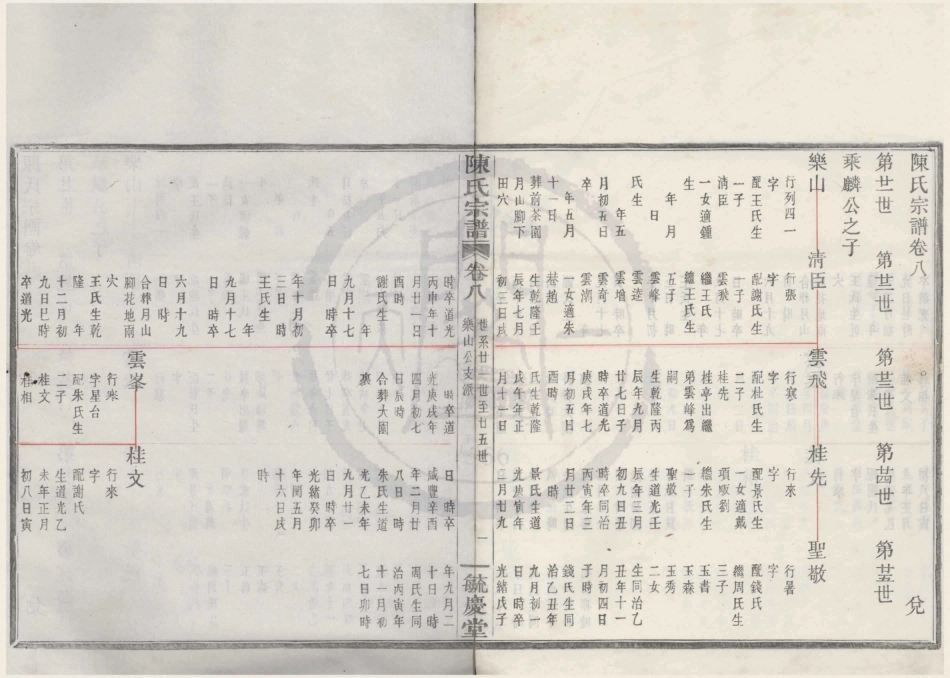 陳氏宗譜卷八 兌
第廿一世 第廿二世 第廿三世 第廿四世 第廿五世
乘麟公之子
樂山 清臣 雲飛 桂先 聖敬
行列四一
字
配王氏生
一子
清臣
一女適鍾
生 年 月
日
氏生
年五
月初五日
卒
年五月
十一日
葬前茶園
月山腳下
田穴
行張
字
配謝氏生
一子
雲飛
繼王氏生
繼王氏生
五子
雲峰
雲逵
雲增
雲奇
雲潮
一女適朱
巷趙
生乾隆壬
辰年七月
初三日戌
行寒
字
配杜氏生
二子
桂先
桂亭出繼
弟雲峰為
嗣
生乾隆丙
辰年九月
廿七日子
時卒道光
庚戌年七
月初五日
酉時
氏生乾隆
戊午年正
月十一日
行來
字
配景氏生
一女適戴
項畈劉
繼朱氏生
一子
聖敬
生道光壬
辰年三月
初九日丑
時卒同治
丙寅年三
月廿三日
時
景氏生道
光庚寅年
三月廿九
行暑
字
配錢氏
繼周氏生
三子
玉書
玉森
玉秀
二女
生同治乙
丑年十一
月初四日
時
錢氏生同
治乙丑年
九月初一
日 時卒
光緒戊子
陳氏宗譜 卷八 世系廿一世至廿五世 樂山公支派 一 毓慶堂
時卒道光
丙申年十
月廿一日
酉時
謝氏生
年
九月十七
日 時卒
年十月初
三日 時
王氏生
年
九月十七
日 時卒
六月十九
日 時
合葬月山
腳花地兩
穴
王氏生乾
隆 年
十二月初
九日巳時
卒道光
時卒道
光庚戌年
四月初七
日辰時
合葬大園
裏
日 時卒
咸豐辛酉
年二月廿
八日 時
朱氏生道
光乙未年
九月廿一
日 時卒
光緒癸卯
年閏五月
十六日戌
時
年九月二
十日 時
周氏生同
治丙寅年
十一月初
七日卯時
雲峯
行來
字星台
配朱氏生
二子
桂文
桂相
桂文
行來
字
配謝氏
生道光乙
未年正月
初八日寅